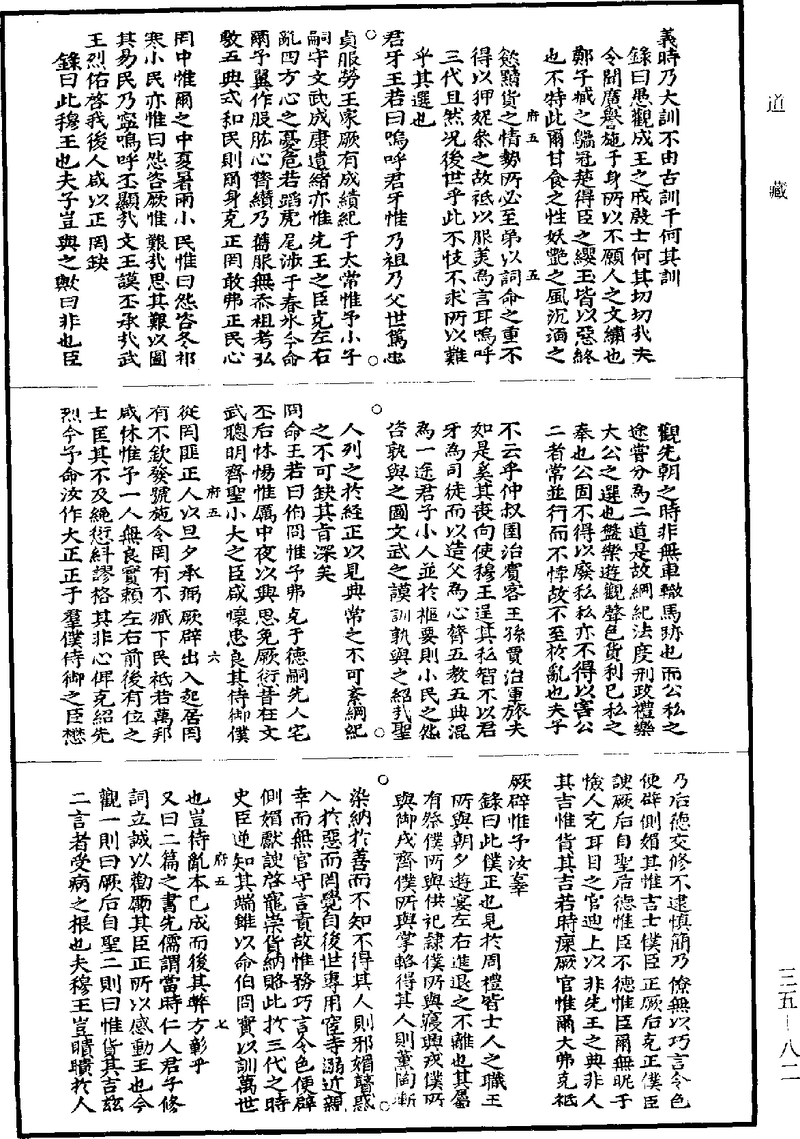 道藏
義時乃大訓不由古訓于何其訓
錄曰愚觀成王之戒殷士何其切切哉夫
令聞廣譽施于身所以不願人之文繡也
鄭子臧之鷸冠楚得臣之纓玉皆以惡終
也不特此爾甘食之性妖艷之風沉湎之
府五 五
慾黷貨之情勢所必至弟以詞命之重不
得以狎妮叅之故祗以服美為言耳嗚呼
三代且然況後世乎此不忮不求所以難
乎其選也
君牙王若曰嗚呼君牙惟乃祖乃父世篤忠
○ ○
貞服勞王家厥有成績紀于太常惟予小子
嗣守文武成康遺緒亦惟先王之臣克左右
亂四方心之憂危若蹈虎尾涉于春氷今命
爾予翼作股肱心膂纘乃舊服無忝祖考弘
敷五典式和民則爾身克正罔敢弗正民心
罔中惟爾之中夏暑雨小民惟曰怨咨冬祁
寒小民亦惟曰怨咨厥惟艱哉思其艱以圖
其易民乃寧嗚呼丕顯哉文王謨丕承哉武
王烈佑啓我後人咸以正罔缺
錄曰此穆王也夫子豈與之歟曰非也臣
觀先朝之時非無車轍馬跡也而公私之
途嘗分為二道是故綱紀法度刑政禮樂
大公之選也盤樂遊觀聲色貨利已私之
奉也公固不得以廢私私亦不得以害公
二者常並行而不悖故不至於亂也夫子
不云乎仲叔圉治賓客王孫賈治軍旅夫
如是奚其喪向使穆王逞其私智不以君
牙為司徒而以造父為心膂五教五典混
為一途君子小人並於樞要則小民之怨
咨孰與之圖文武之謨訓孰與之紹哉聖
○ ○
人列之於經正以見典常之不可紊綱紀
之不可缺其旨深矣
冏命王若曰伯冏惟予弗克于德嗣先人宅
丕后怵惕惟厲中夜以興思免厥愆昔在文
武聰明齊聖小大之臣咸懷忠良其侍御僕
府五 六
從罔匪正人以旦夕承弼厥辟出入起居罔
有不欽發號施令罔有不臧下民祗若萬邦
咸休惟予一人無良實賴左右前後有位之
士匡其不及繩愆糾謬格其非心俾克紹先
烈今予命汝作大正正于羣僕侍御之臣懋
乃后德交修不逮慎簡乃僚無以巧言令色
便辟側媚其惟吉士僕臣正厥后克正僕臣
諛厥后自聖后德惟臣不德惟臣爾無昵于
憸人充耳目之官迪上以非先王之典非人
其吉惟貨其吉若時瘝厥官惟爾大弗克祗
厥辟惟予汝辜
錄曰此僕正也見於周禮皆士人之職王
所與朝夕遊宴左右進退之不離也其屬
有祭僕所與供祀隷僕所與寢興戎僕所
與御戎齊僕所與掌輅得其人則薰陶漸
○ ○
染納於善而不知不得其人則邪媚瞽惑
入於惡而罔覺自後世專用宦寺溺近親
幸而無官守言責故惟務巧言令色便辟
側媚獻諛啓寵崇貨納賂此於三代之時
史臣逆知其端錐以命伯冏實以訓萬世
府五 七
也豈待亂本已成而後其弊方彰乎
又曰二篇之書先儒謂當時仁人君子修
詞立誠以勸勵其臣正所以感動王也今
觀一則曰厥后自聖二則曰惟貨其吉茲
二言者受病之根也夫穆王豈聵聵於人
三五－八二